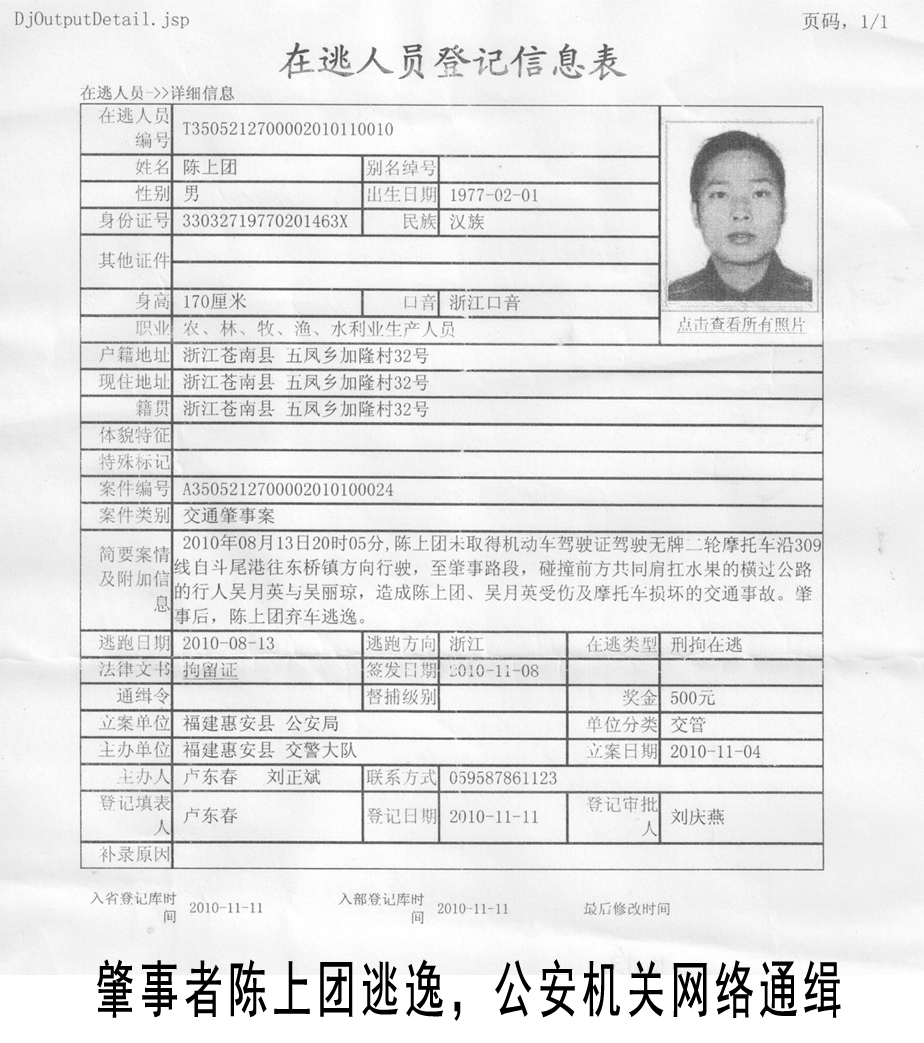 DjOutputDetail.jsp 页码，1/1
在逃人员登记信息表
在逃人员->>详细信息
在逃人员编号 T3505212700002010110010
姓名 陈上团 别名绰号
性别 男 出生日期 1977-02-01
身份证号 33032719770201463X 民族 汉族
其他证件
身高 170厘米 口音 浙江口音
点击查看所有照片
职业 农、林、牧、渔、水利业生产人员
户籍地址 浙江苍南县 五凤乡加隆村32号
现住地址 浙江苍南县 五凤乡加隆村32号
籍贯 浙江苍南县 五凤乡加隆村32号
体貌特征
特殊标记
案件编号 A3505212700002010100024
案件类别 交通肇事案
简要案情及附加信息
2010年08月13日20时05分,陈上团未取得机动车驾驶证驾驶无牌二轮摩托车沿309
线自斗尾港往东桥镇方向行驶，至肇事路段，碰撞前方共同肩扛水果的横过公路
的行人吴月英与吴丽琼，造成陈上团、吴月英受伤及摩托车损坏的交通事故。肇
事后，陈上团弃车逃逸。
逃跑日期 2010-08-13 逃跑方向 浙江 在逃类型 刑拘在逃
法律文书 拘留证 签发日期 2010-11-08
通缉令 督捕级别 奖金 500元
立案单位 福建惠安县 公安局 单位分类 交管
主办单位 福建惠安县 交警大队 立案日期 2010-11-04
主办人 卢东春 刘正斌 联系方式 059587861123
登记填表人 卢东春 登记日期 2010-11-11 登记审批人 刘庆燕
补录原因
入省登记库时间 2010-11-11 入部登记库时间 2010-11-11 最后修改时间
肇事者陈上团逃逸，公安机关网络通缉